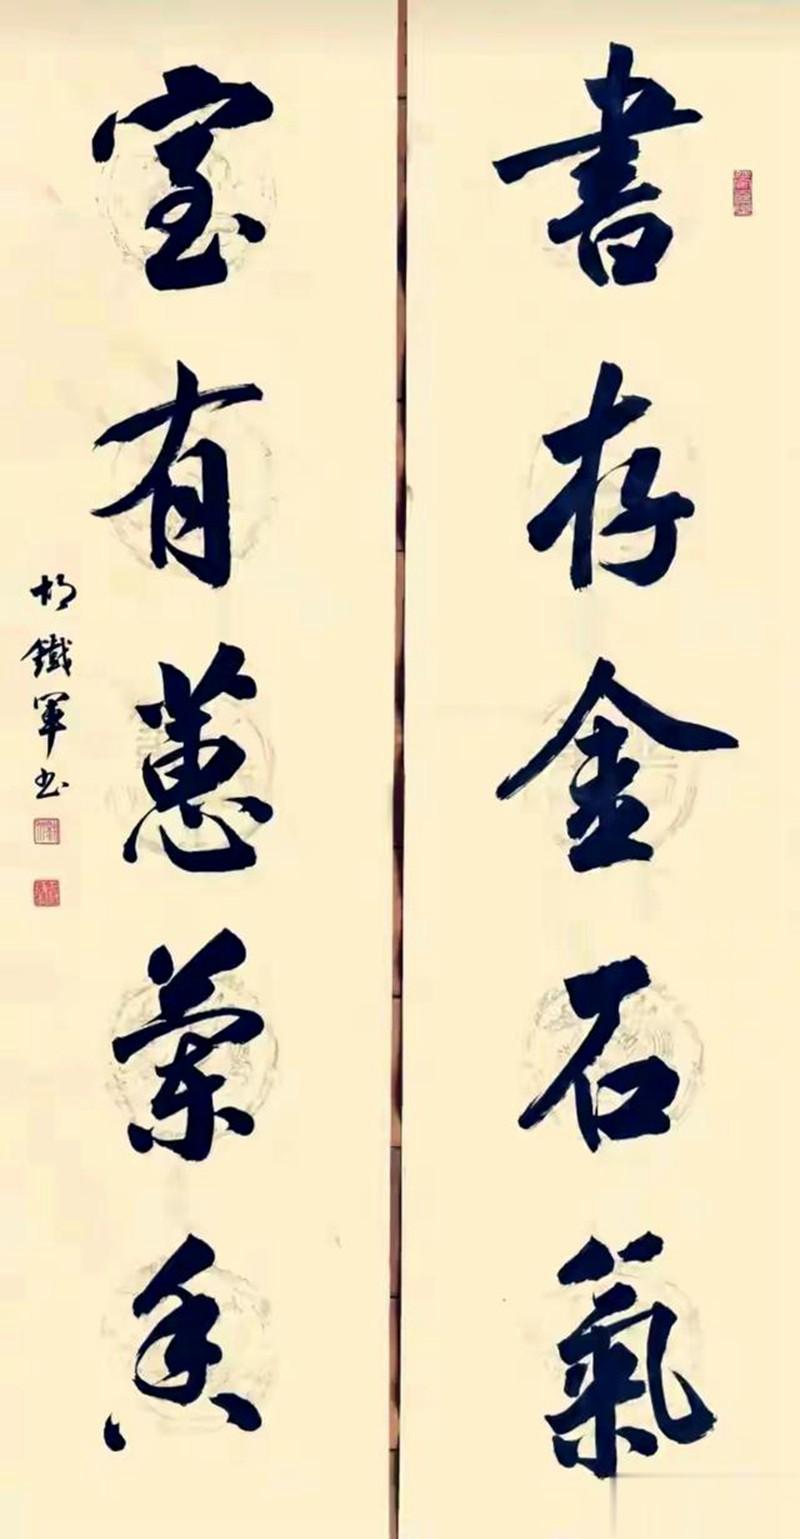 書存金石氣
室有蕙蘭香
胡鐵軍书